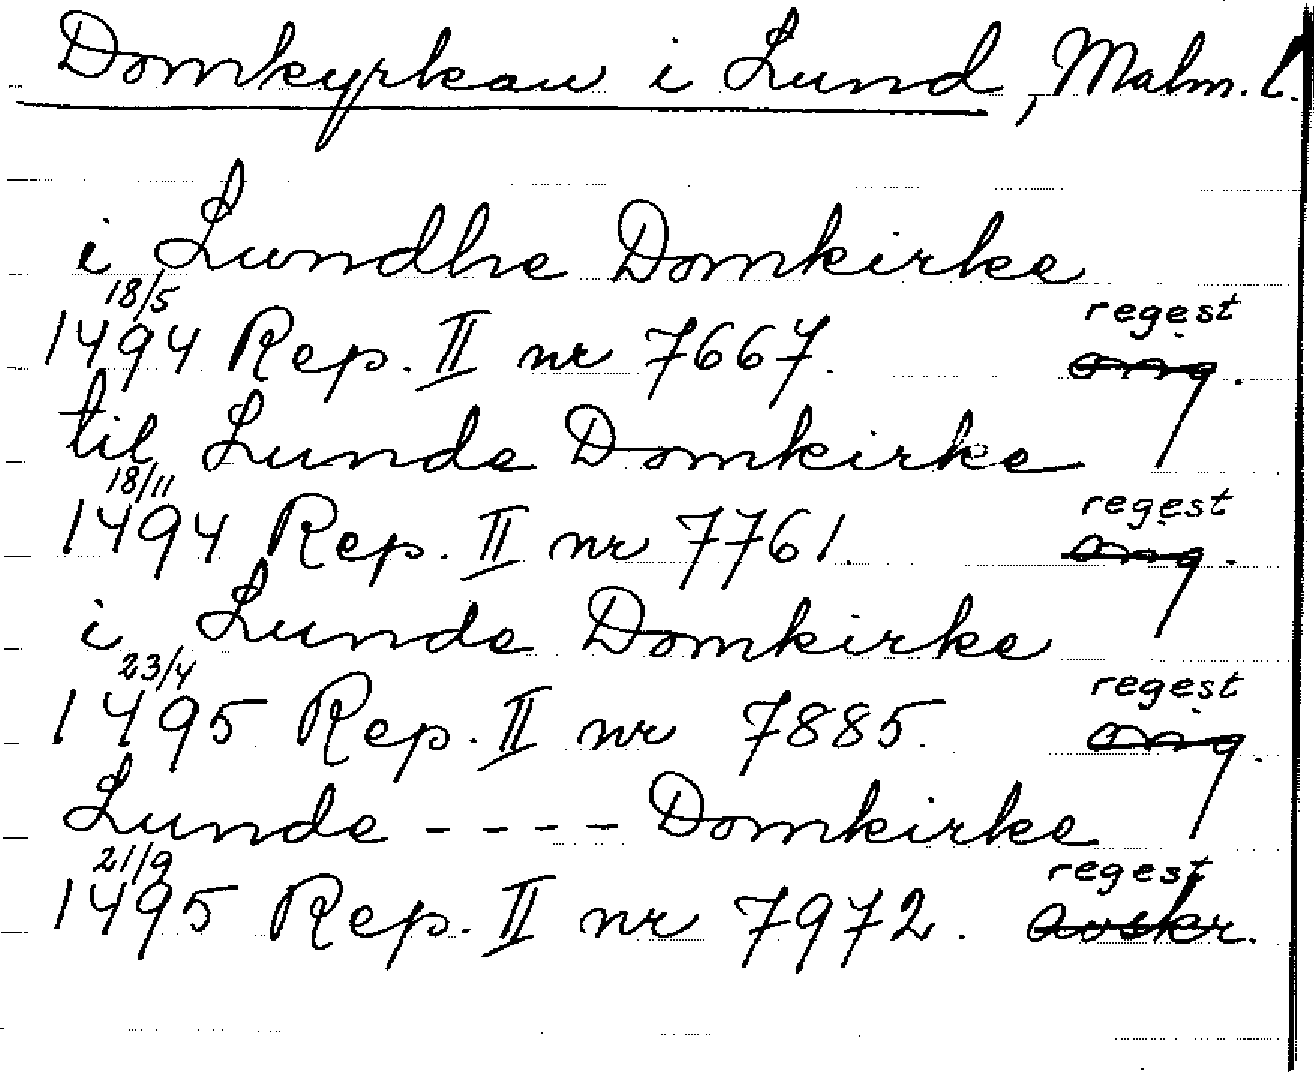 Domkyrkan i Lund, Malm. l.
i Lundhe Domkirke
18/5 regest
1494 Rep. II nr 7667. orig.
til Lunde Domkirke
18/11 regest
1494 Rep. II nr 7761. orig.
i Lunde Domkirke
23/4 regest
1495 Rep. II nr 7885. orig.
Lunde - - - - Domkirke
21/9 regest
1495 Rep. II nr 7972. avskr.